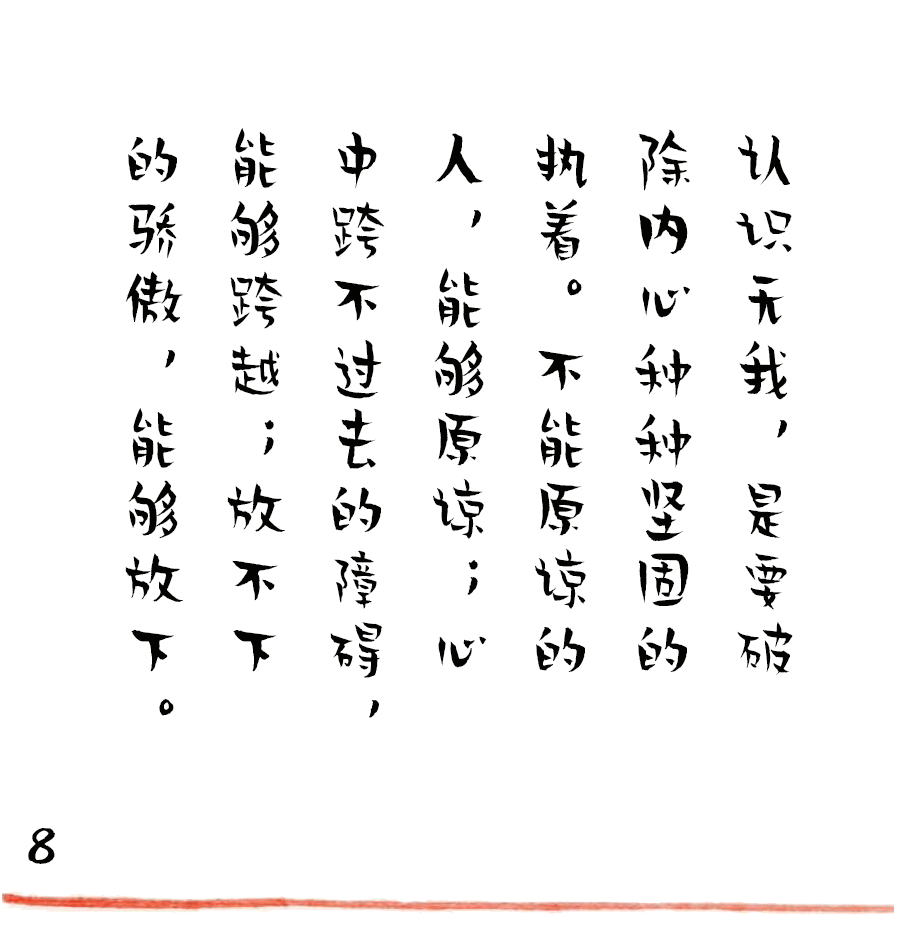 认识无我，是要破
除内心种种坚固的
执着。不能原谅的
人，能够原谅；心
中跨不过去的障碍，
能够跨越；放不下
的骄傲，能够放下。
8